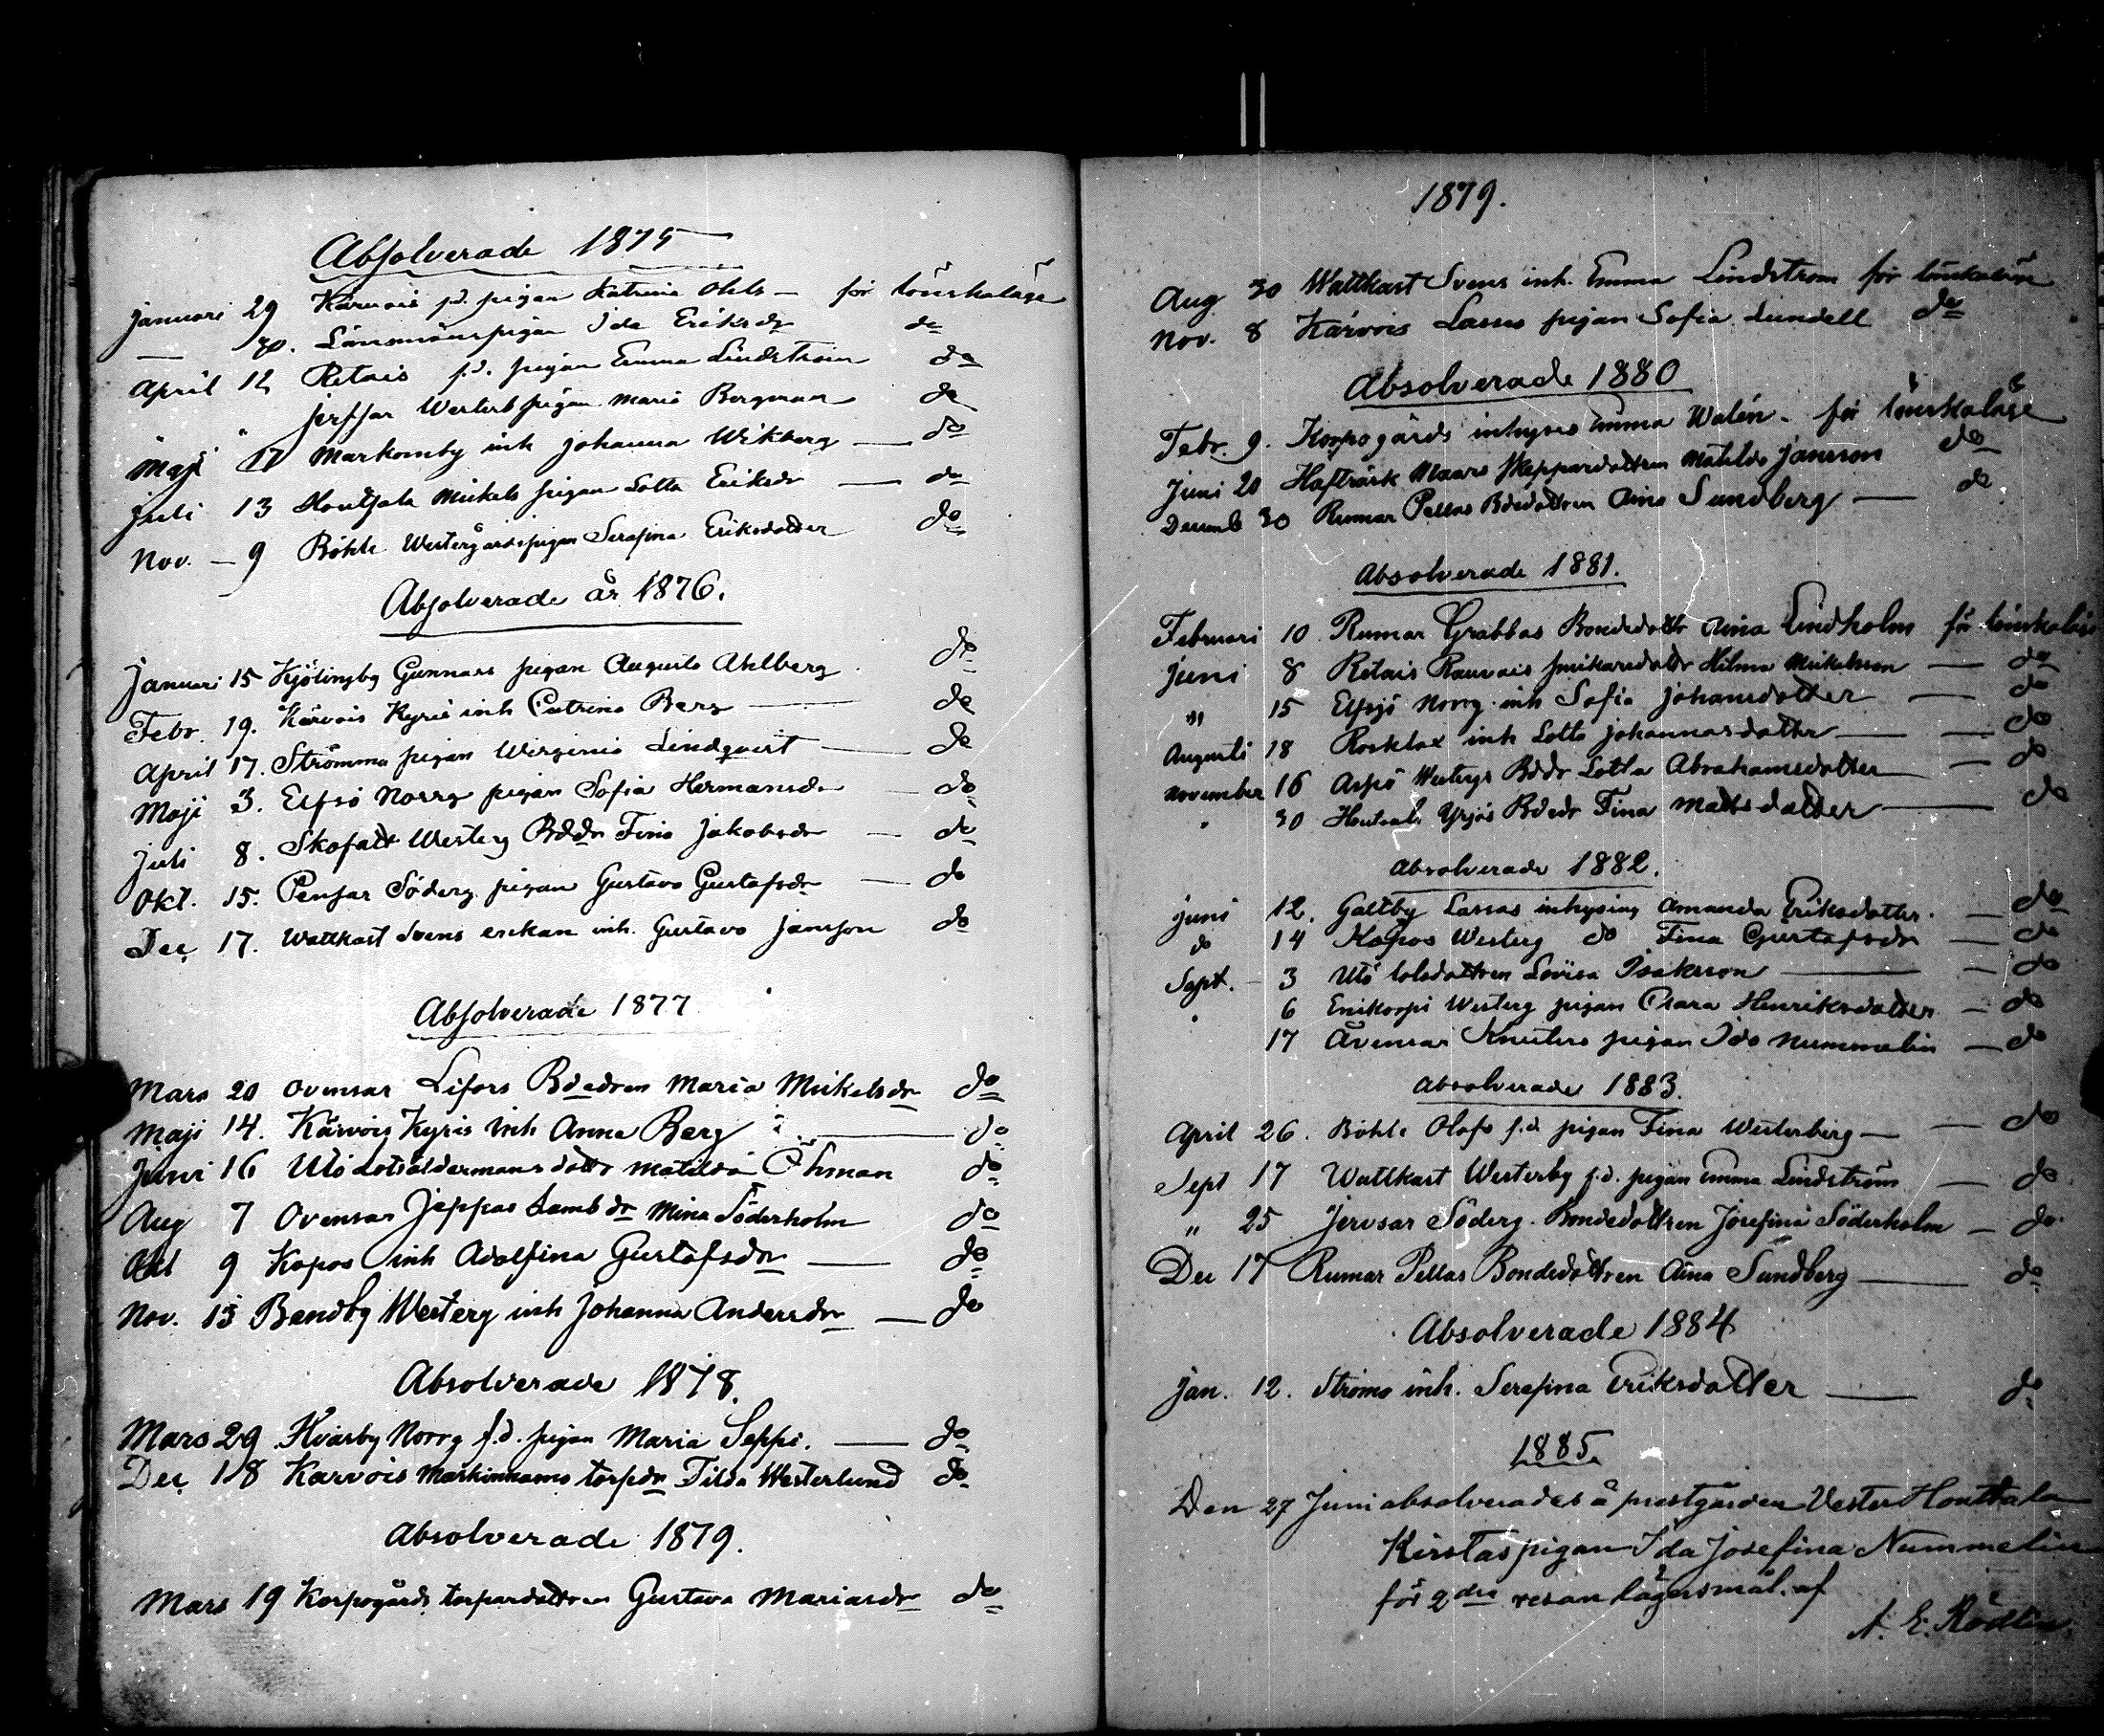 Absolverade 1875
Januari 29 Kärvois f.d. pigan Katrina Ohls — för lönskaläge
— 30. Länsmänspigan Ida Eriksdr do
April 12 Retais f.d. pigan Emma Lindström do
" Jerfsar Westerb pigan Maria Bergman do
Maji 17 Markomby inh Johanna Wikberg — do
Juli 13 Houtsala Mickels pigan Lotta Eriksdr — do
Nov. — 9 Böhle Westergårds pigan Serafina Eriksdotter do
Absolverade år 1876.
Januari 15 Kjölingby Gunnars pigan Augusta Ahlberg do
Febr. 19. Kärvois Kyris inh Catrina Berg — do
April 17. Strömma pigan Wirginia Lindqvist — do
Maji 3. Elfsö Norrg pigan Sofia Hermansdr — do
Juli 8. Skofalt Westerg Bddr Fina Jakobsdr — do
Okt. 15. Pensar Söderg pigan Gustava Gustafsdr — do
Dec 17. Wattkast Svens enkan inh. Gustava Jansson do
Absolverade 1877
Mars 20 Ovensar Lifors Bdedren Maria Mickelsdr do
Maji 14. Kärvois Kyris inh Anna Berg — do
Juni 16 Utö Lotsåldermans dottr Matilda Öhman do
Aug 7 Ovensar Jeppas Lambdr Mina Söderholm do
Okt 9 Kopos inh Adolfina Gustafsdr — do
Nov. 13 Bendby Westerg inh Johanna Andersdr — do
Absolverade 1878.
Mars 29 Kvarby Norrg f.d. pigan Maria Seppi. — do
Dec 18 Karvois Markinkamo torpdr Tilda Westerlund do
Absolverade 1879.
Mars 19 Korpogårds torpardottren Gustava Mariasdr do
1879.
Aug. 30 Wattkast Svens inh. Emma Lindström för lönskaläge
Nov. 8 Kärvois Lassas pigan Sofia Lundell do
Absolverade 1880
Febr. 9. Korpogårds inhyses Emma Walén — för lönskaläge
Juni 20 Hafträsk Maars Skeppardottren Matilda Jansson do
Decemb 30 Rumar Pellas Bdedottren Aina Sundberg — do
Absolverade 1881.
Februari 10 Rumar Grabbas Bondedottr Aina Lindholm för lönskaläge
Juni 8 Retais Rauvais smikaredottr Hilma Mickelsson — do
" 15 Elfsjö Norrg inh Sofia Johansdotter — do
Augusti 18 Rosklax inh Lotta Johannasdotter — do
November 16 Aspö Westergs Bddr Lotta Abrahamsdotter — do
" 30 Houtsala Yrjäs Bdedr Fina Mattsdotter — do
Absolverade 1882.
Juni 12. Galtby Lassas inhysing Amanda Eriksdotter. — do
do 14 Kopos Westerg do Fina Gustafsdr — do
Sept. — 3 Utö lolsdottren Lovisa Isaksson — do
" 6 Enikorpi Westerg pigan Clara Henriksdotter — do
17 Åvensar Knuters pigan Ida Nummelin — do
Absolverade 1883.
April 26. Böhle Olofs f.d. pigan Fina Westerberg — do
Sept 17 Wattkast Westerby f.d. pigan Emma Lindström — do
" 25 Jervsar Söderg. Bondedottren Josefina Söderholm — do.
Dec 17 Rumar Pellas Bondedottren Aina Sundberg — do
Absolverade 1884
Jan. 12. Strömo inh. Serafina Eriksdotter — do
1885.
Den 27 Juni absolverades å prestgården Vester Houtsala
Kirstas pigan Ida Josefina Nummelin
för 2dra resan lägersmål. af
A. E. Rödlin.